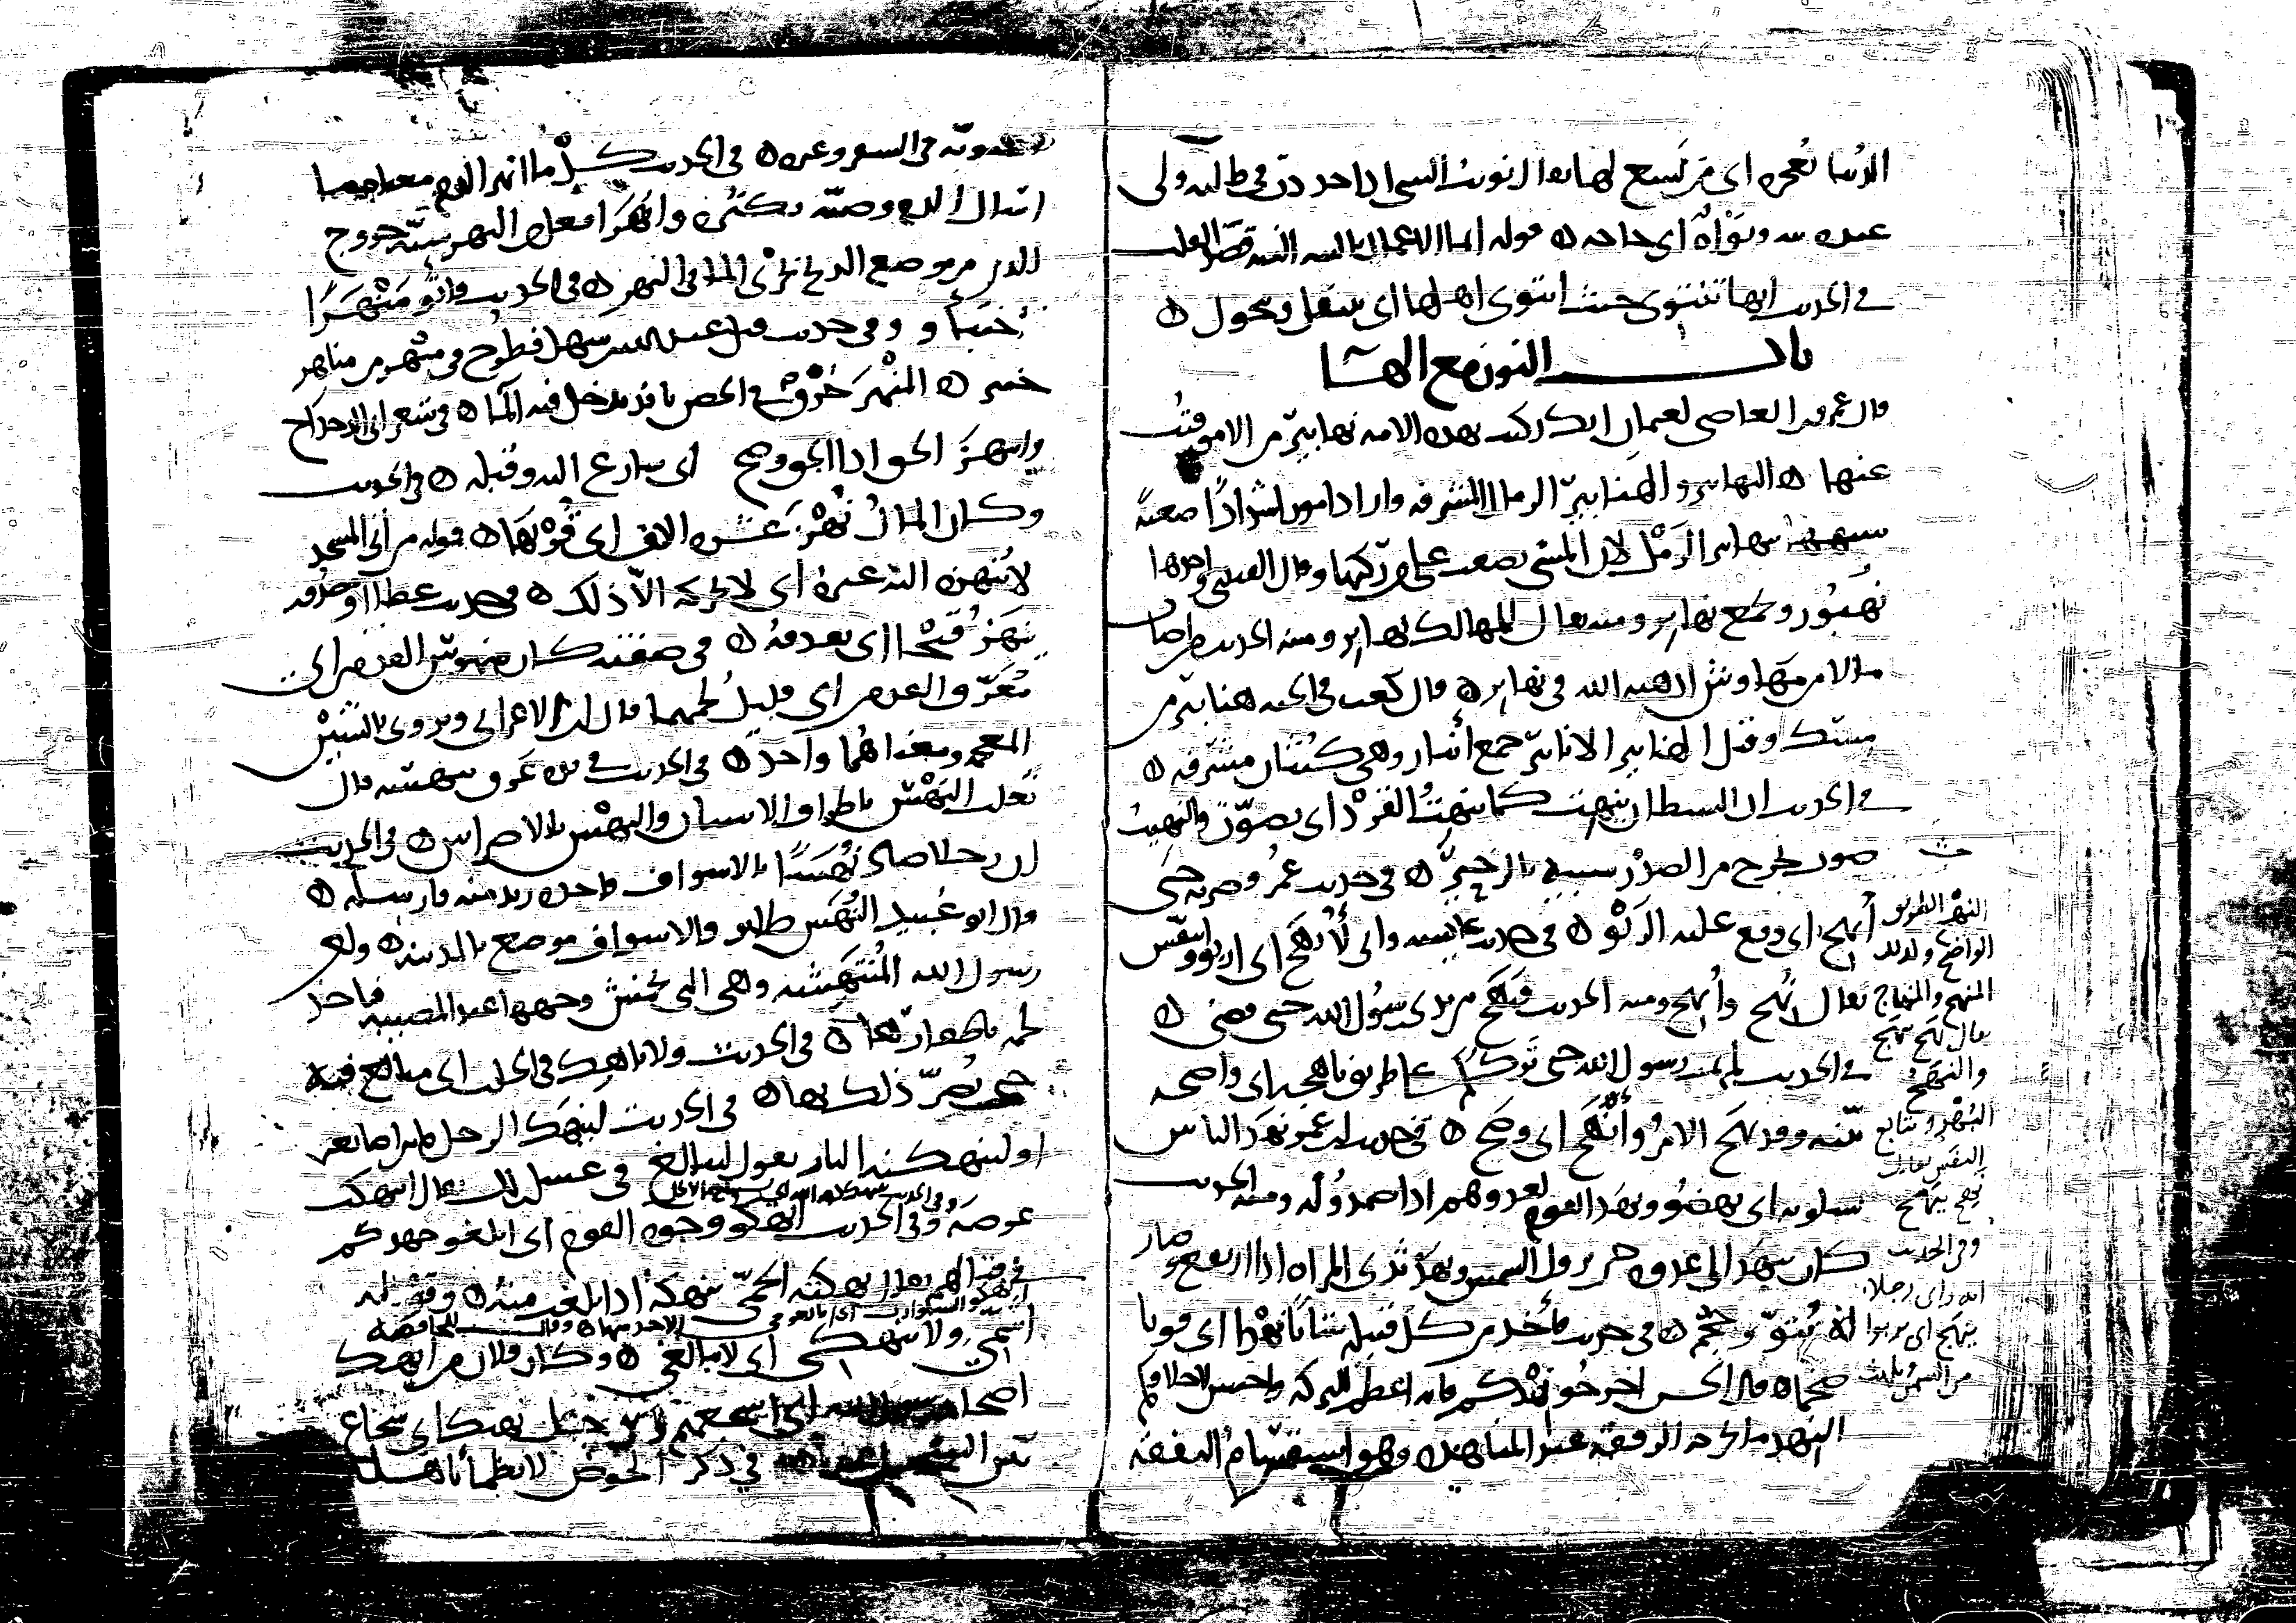 الدنيا تعجزه اى من يسع لها يقال نويت الشى اذا جددت فى طلبه ولى
عنده نيه ونواة اى حاجه ه قوله انما الاعمال بالنيه النيه قصد القلب
فى الحديث انها تنتوى حيث انتوى اهلها اى ينتقل ويتحول ه
باب النون مع الها
قال عمرو بن العاصى لعثمان انك ركبت بهذه الامه نهابير من الامور فتب
عنها ه النهابير والهنابير الرمال المشرفه واراد امورا شدادا صعبه
شبهها بنهابير الرمل لان المشى يصعب على من ركبها وقال القتيبى واحدها
نهبور وتجمع نهابر ومنه يقال للمهالك نهابر ومنه الحديث من اصاب
مالا من مهاوش اذهبه الله فى نهابر ه قال كعب فى الجنه هنابير من
مسك وقيل الهنابير الانابير جمع أنبار وهى كثبان مشرفه ه
فى الحديث ان الشيطان ينهت كما ينهت القرد اى يصوت والنهيت
صوت يخرج من الصدر شبيه بالزحير ه فى حديث عمر وضربه حتى
أنهج اى وقع عليه الربو ه فى حديث عايشه وانى لأنهج اى اربو واتنفس
يقال نهج وأنهج ومنه الحديث فنهج بين يدى رسول الله حتى قضى ه
فى الحديث لم يمت رسول الله حتى تركـكم على طريق ناهجه اى واضحه
بينه وقد نهج الامر وأنهج اى وضح ه فى حديث ابن عمر نهد الناس
يسلونه اى نهضو ونهد القوم لعدوهم اذا صمدو له ومنه الحديث
كان ينهد الى عدوه حين تزول الشمس ونهد ثدى المراه اذا ارتفع وصار
له نتو وحجم ه فى حديث فأخذ من كل قبيله شابا نهدا اى قويا
ضخما ه قال الحسن اخرجو نهدكم فانه اعظم للبركه واحسن لاخلاقكم
النهد ما تخرجه الرفقه عند المناهده وهو استقسام النفقه
النهج الطريق
الواضح وكذلك
المنهج والمنهاج
يقال نهج ينهج
والنهج
البهر وتتابع
النفس يقال
نهج ينهج
وفى الحديث
انه راى رجلا
ينهج اى يربوا
من السمن
بالسويه فى السفر وغيره ه فى الحديث كل ما انهر الدم معناه ما
اسال الدم وصبه بكثره وانهر افعل من النهر شبه خروج
الدم من موضع الذبح بجرى الما فى النهر ه فى الحديث فاتو منهرا
فاختبأو وفى حديث قتل عبد الله بن سهل فطرح فى منهر من مناهر
خيبر ه المنهر خرق فى الحصن نافذ يدخل فيه الما ه فى شعر ابى الدحداح
وانتهز الحق اذا الحق وضح اى سارع اليه وقبله ه فى الحديث
وكان المال نهز عشره الاف اى قربها ه قوله من اتى المسجد
لا ينهزه اليه غيره اى لا يحركه الا ذلك ه فى حديث عطا او مصدور
ينهز قيحا اى يقذفه ه فى صفته كان منهوس القدمين اى
معرق القدمين اى قليل لحمهما قال ابن الاعرابى ويروى بالشين
المعجمه ومعناهما واحد ه فى الحديث
ثعلب النهس باطراف الاسنان والنهش بالاضراس ه فى الحديث
ان رجلا صاد نهسا بالاسواف فاخذه زيد منه فارسله ه
قال ابو عبيد النهس طاير والاسواف موضع بالمدينه ه ولعن
رسول الله المنتهشه وهى التى تخمش وجهها عند المصيبه فتاخذ
لحمه باظفارها ه فى الحديث ولا ناهك فى الحلب اى مبالغ فيه
حتى يضر ذلك بها ه فى الحديث لينهك الرجل ما بين اصابعه
او لتنهكنه النار يقول ليبالغ فى غسل ذلك يقال انتهك
عرضه وفى الحديث انهكو وجوه القوم اى ابلغو جهدكم
فى قتالهم يقال نهكته الحمى تنهكه اذا بلغت منه ه وقوله
اشمى ولا تنهكى اى لا تبالغى ه وكان فلان من انهك
اصحاب رسول الله اى اشجعهم
فى ذكر الحوض لا يظمأ ناهله